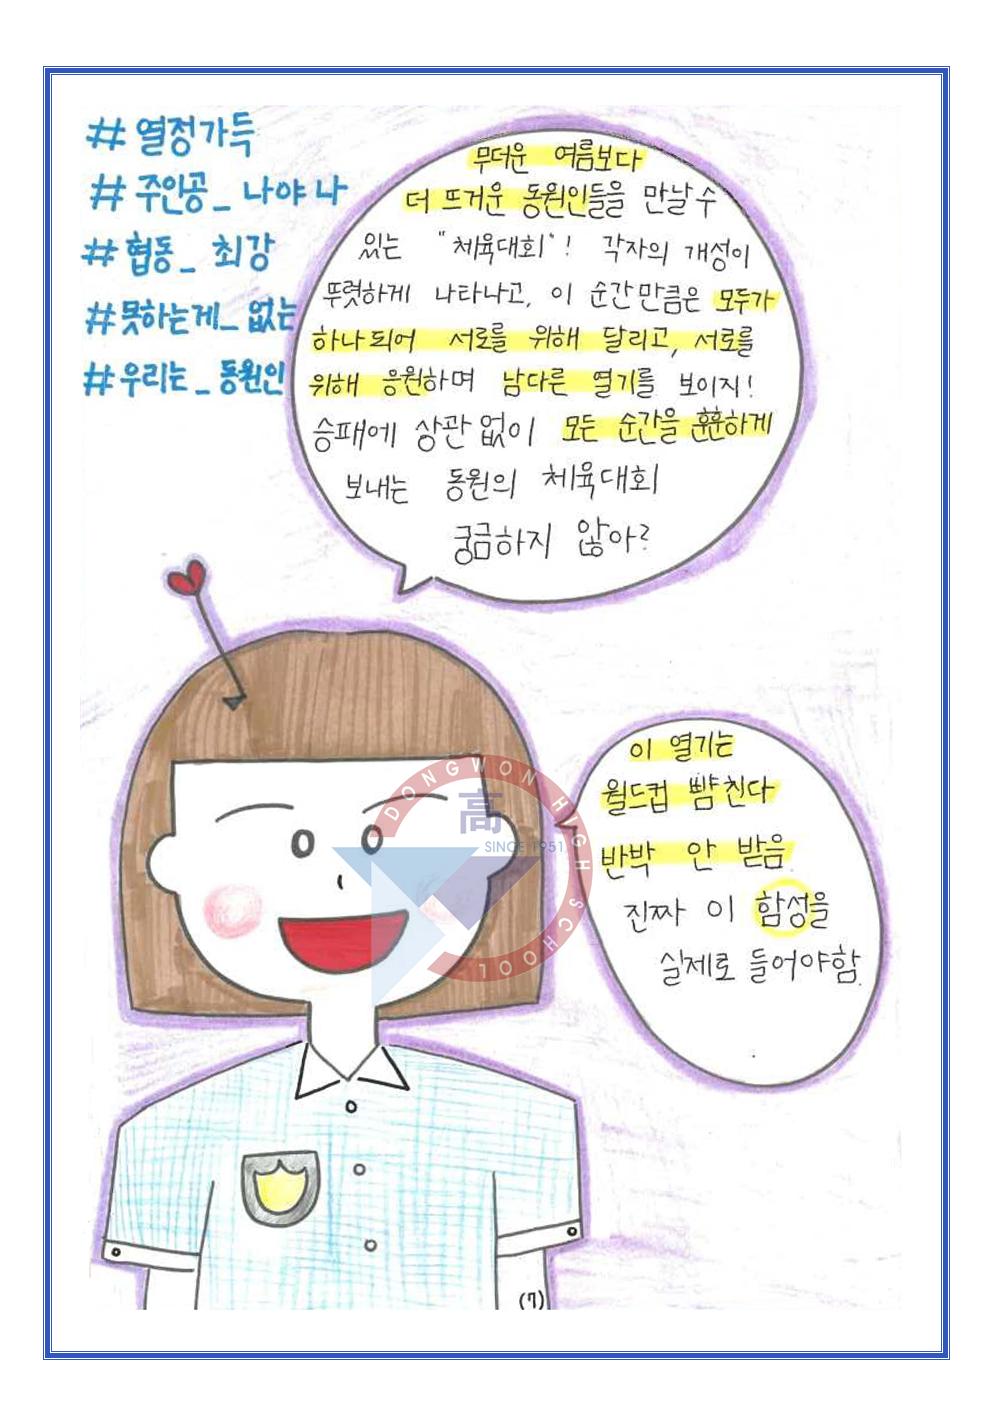 # 열정가득
# 주인공_ 나야 나
# 협동_ 최강
# 못하는게_ 없는
# 우리는_ 동원인
무더운 여름보다
더 뜨거운 동원인들을 만날 수
있는 "체육대회"! 각자의 개성이
뚜렷하게 나타나고, 이 순간만큼은 모두가
하나되어 서로를 위해 달리고, 서로를
위해 응원하며 남다른 열기를 보이지!
승패에 상관없이 모든 순간을 훈훈하게
보내는 동원의 체육대회
궁금하지 않아?
이 열기는
월드컵 뺨친다
반박 안 받음.
진짜 이 함성을
실제로 들어야함.
DONGWON HIGH SCHOOL
高
SINCE 1951
(7)